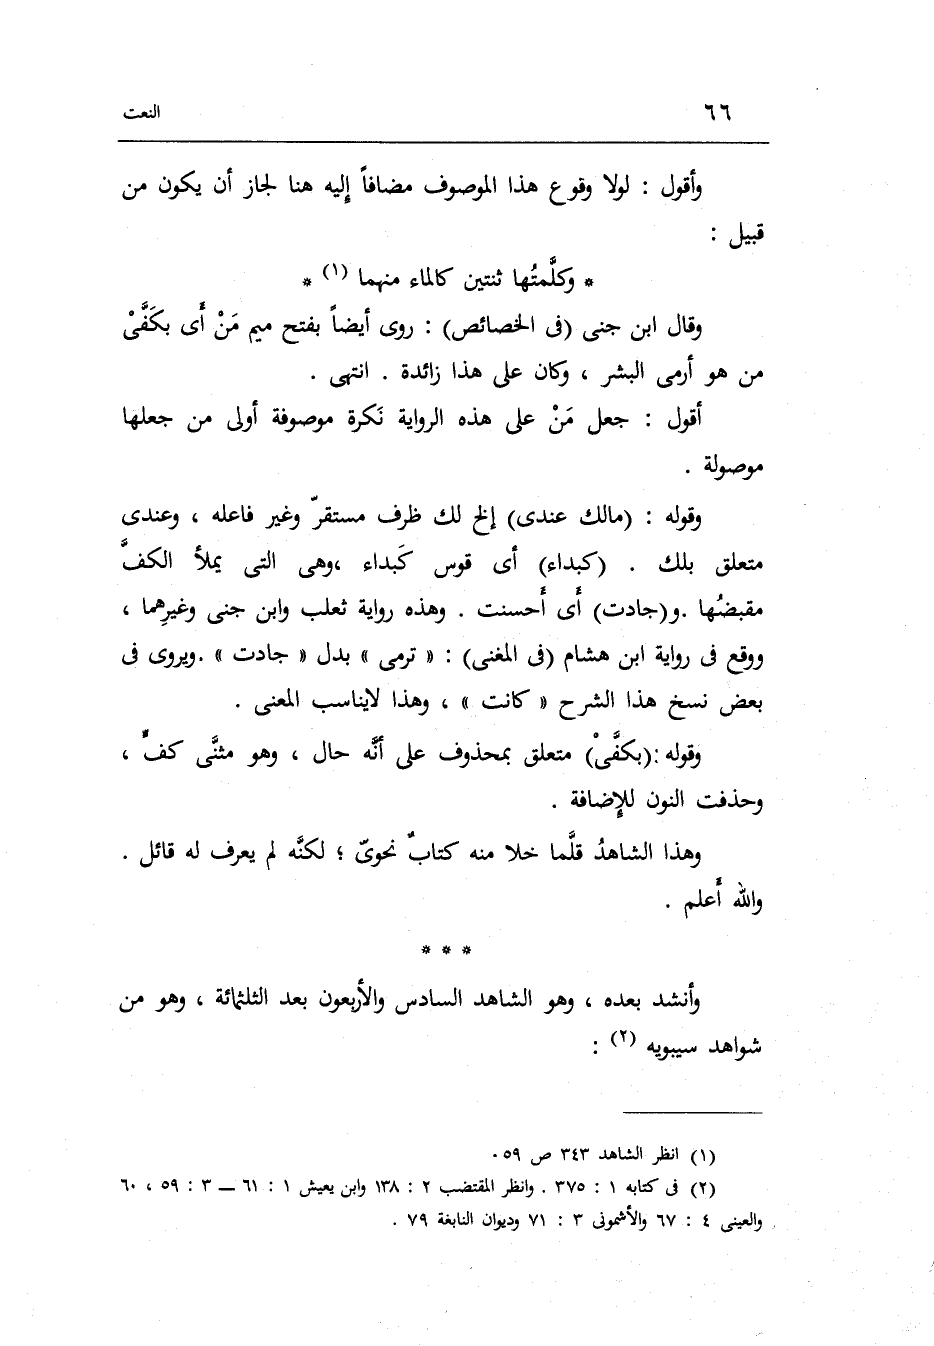 ٦٦ النعت
وأقول : لولا وقوع هذا الموصوف مضافاً إليه هنا لجاز أن يكون من
قبيل :
* وكلَّمتُها ثنتين كالماء منهما (١) *
وقال ابن جنى (فى الخصائص) : روى أيضاً بفتح ميم مَنْ أى بكَفَّىْ
من هو أرمى البشر ، وكان على هذا زائدة . انتهى .
أقول : جعل مَنْ على هذه الرواية نَكرة موصوفة أولى من جعلها
موصولة .
وقوله : (مالك عندى) إلخ لك ظرف مستقرّ وغير فاعله ، وعندى
متعلق بلك . (كبداء) أى قوس كَبداء ،وهى التى يملأ الكفَّ
مقبضُها .و(جادت) أى أحسنت . وهذه رواية ثعلب وابن جنى وغيرِهما ،
ووقع فى رواية ابن هشام (فى المغنى) : « ترمى » بدل « جادت » .ويروى فى
بعض نسخ هذا الشرح « كانت » ، وهذا لايناسب المعنى .
وقوله :(بكفَّىْ) متعلق بمحذوف على أنَّه حال ، وهو مثنَّى كفٌ ،
وحذفت النون للإضافة .
وهذا الشاهدُ قلَّما خلا منه كتابٌ نحوىّ ؛ لكنَّه لم يعرف له قائل .
والله أعلم .
* * *
وأنشد بعده ، وهو الشاهد السادس والأربعون بعد الثلثمائة ، وهو من
شواهد سيبويه (٢) :
(١) انظر الشاهد ٣٤٣ ص ٥٩ .
(٢) فى كتابه ١ : ٣٧٥ . وانظر المقتضب ٢ : ١٣٨ وابن يعيش ١ : ٦١ – ٣ : ٥٩ ، ٦٠
والعينى ٤ : ٦٧ والأشمونى ٣ : ٧١ وديوان النابغة ٧٩ .